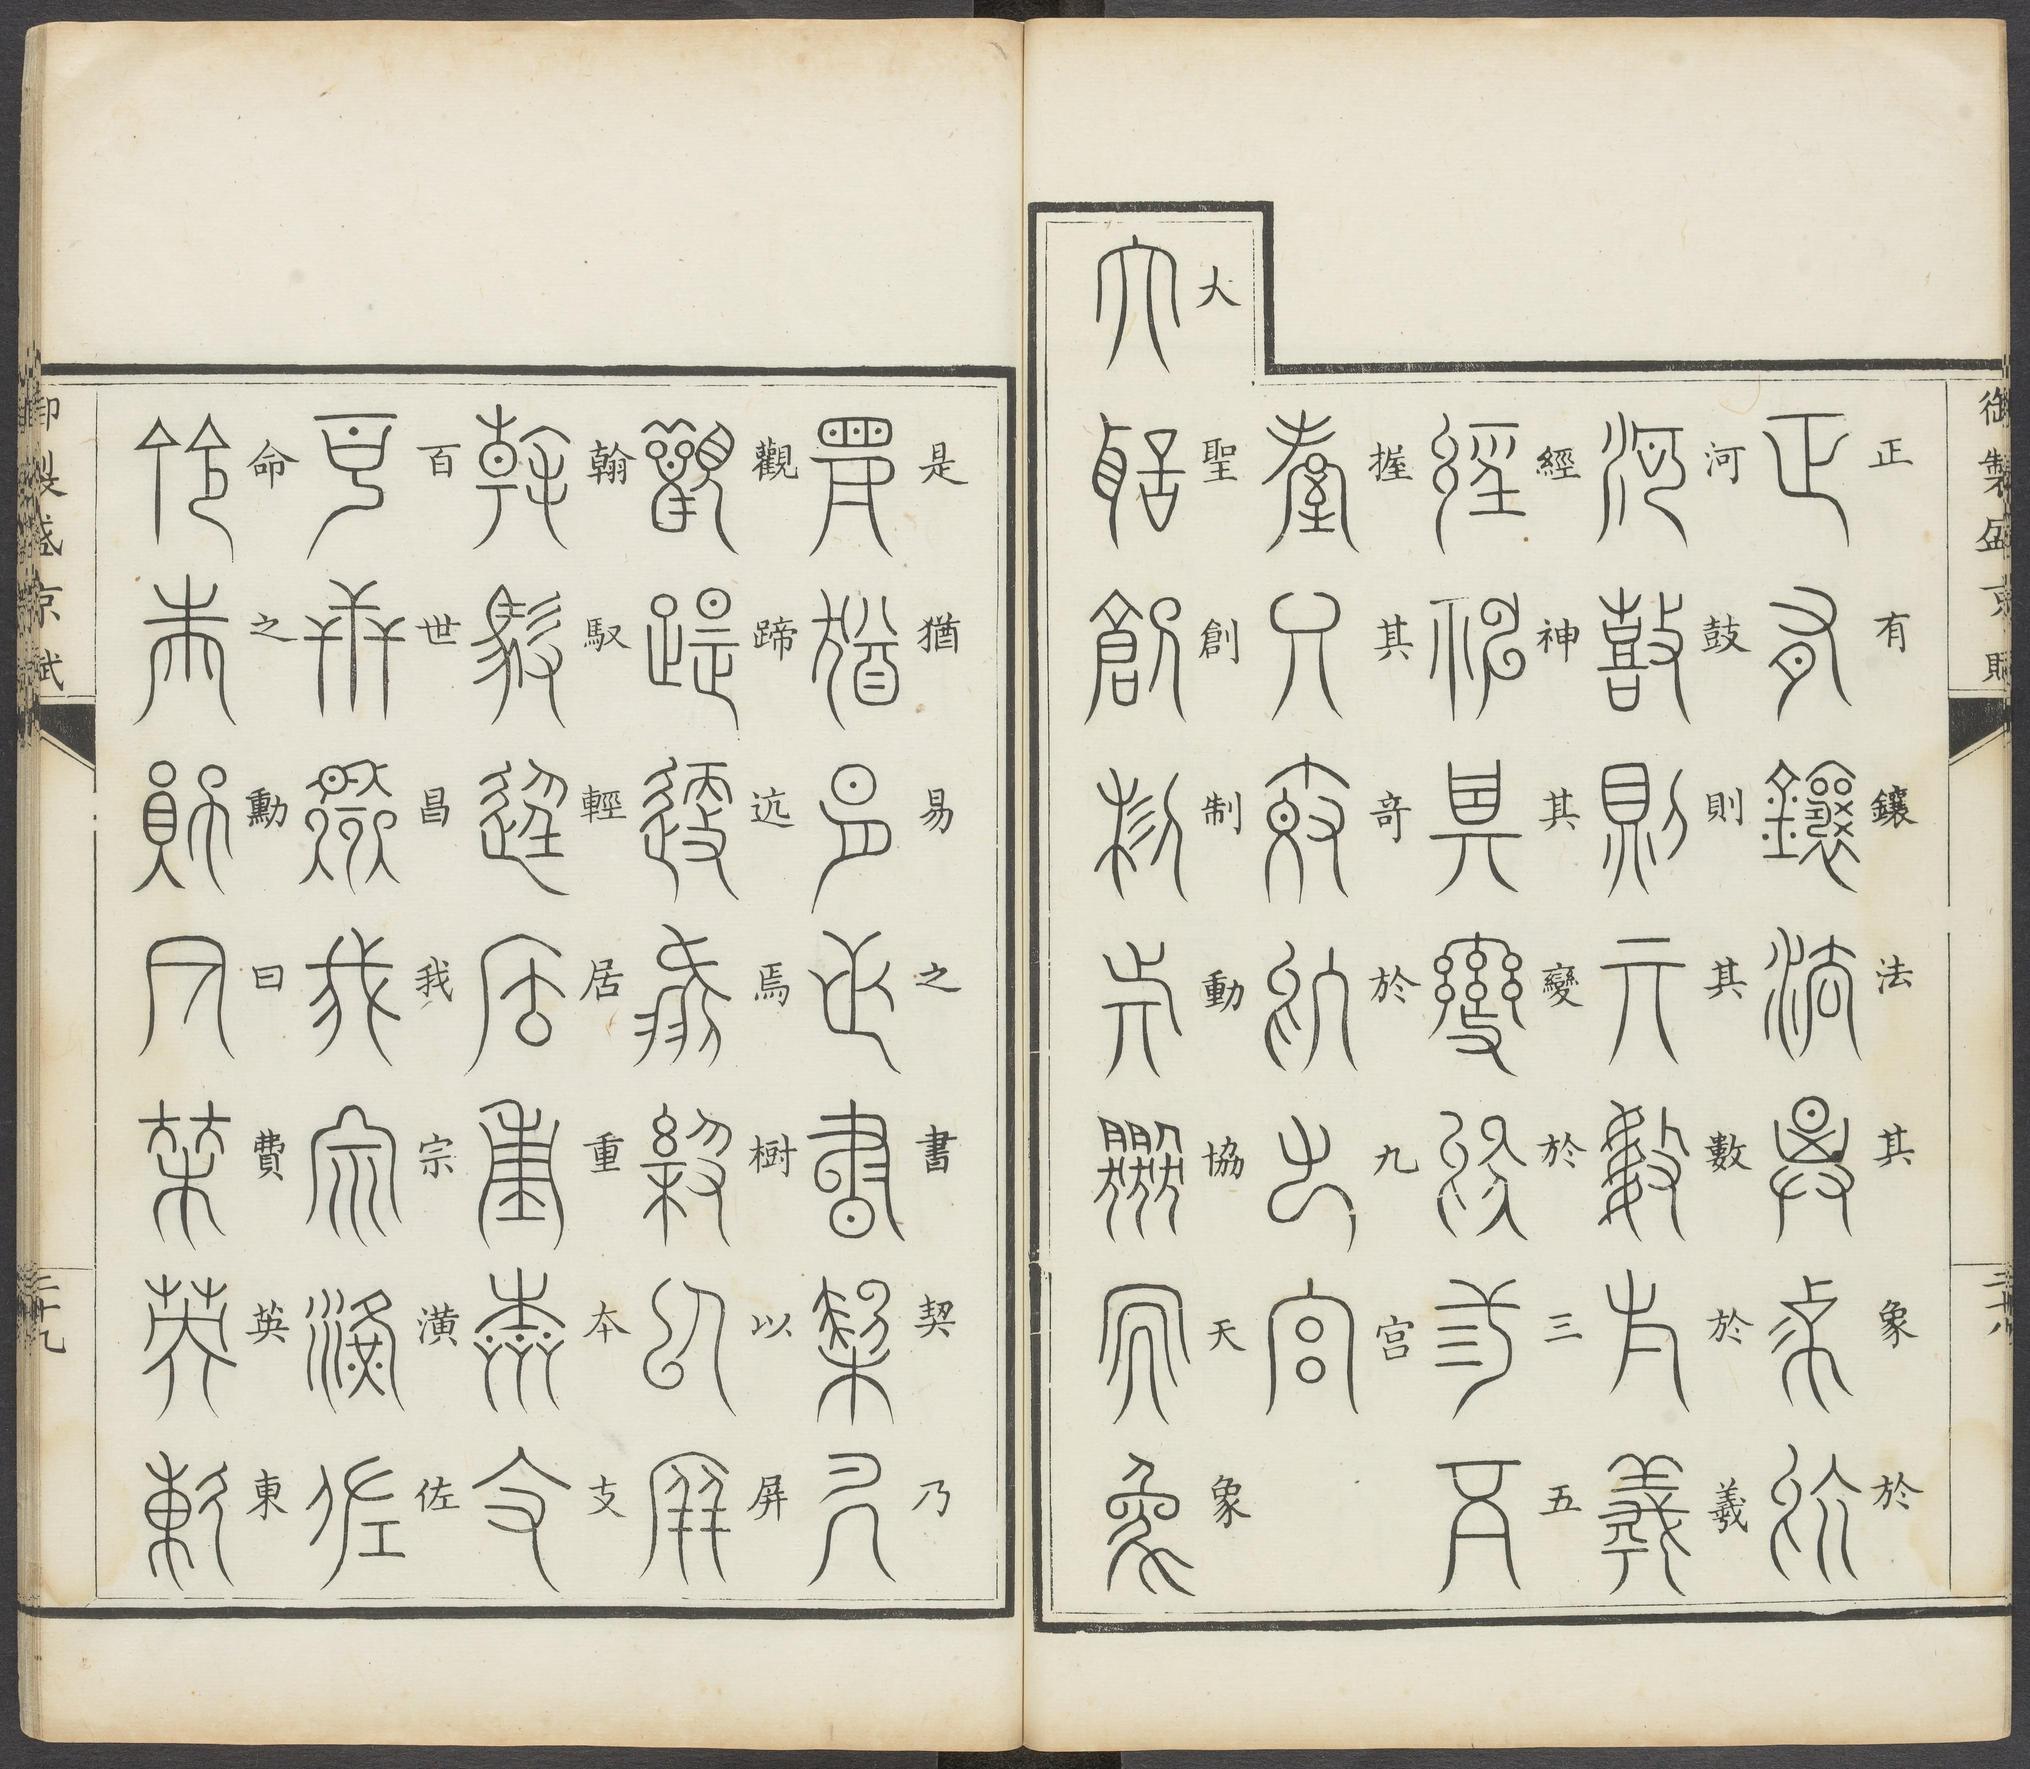 御製盛京賦
三十八
正有鑲法其象於
河鼓則其數於羲
經神其變於三五
握其竒於九宮
大聖創制動協天象
是猶易之書契乃
觀蹄迒焉樹以屏
翰馭輕居重本支
百世昌我宗潢佐
命之勳曰費英東
御製盛京賦
三十九